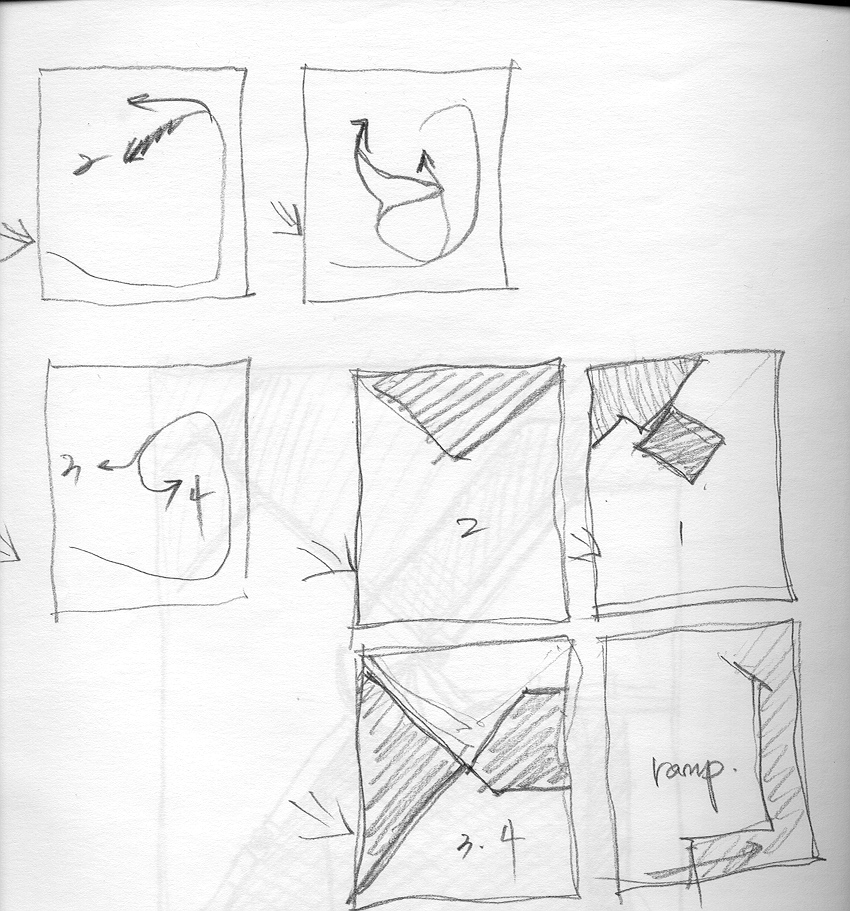 2
3 4
2
1
3.4
ramp.